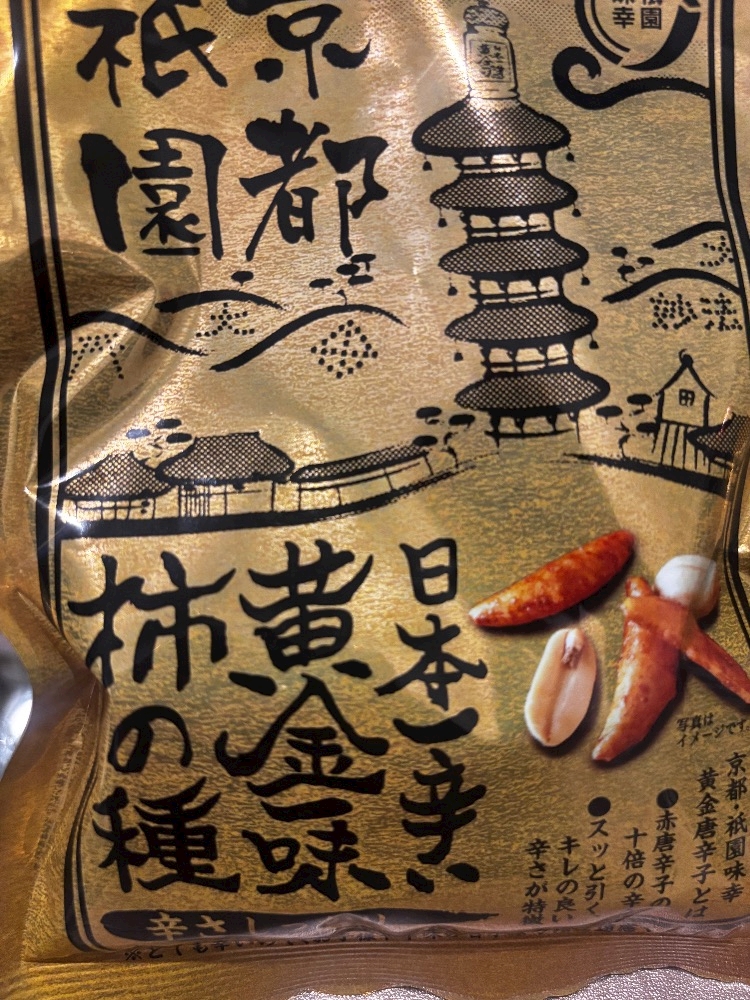 京都
祇園
祇園
味幸
日本一辛い
黄金一味
柿の種
写真は
イメージです
京都・祇園味幸
黄金唐辛子とは
●赤唐辛子の
十倍の辛
●スッと引く
キレの良い
辛さが特徴
辛さ